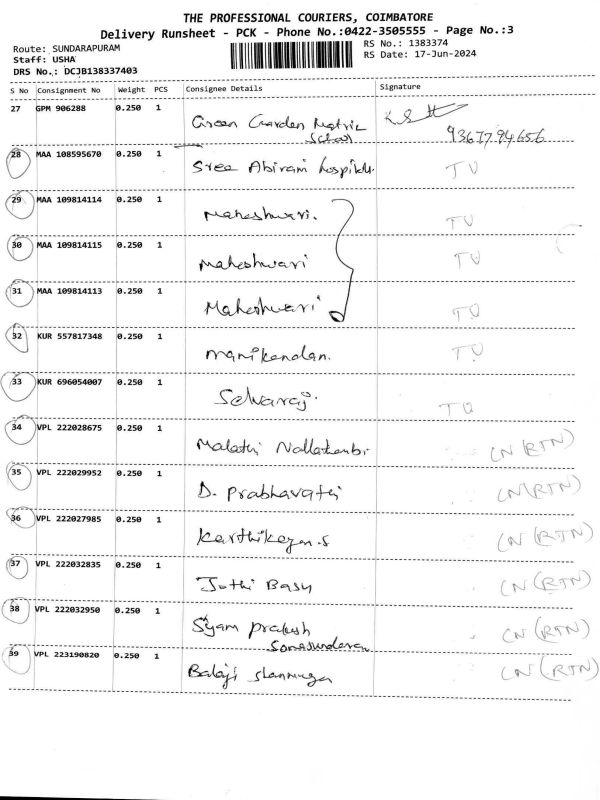 THE PROFESSIONAL COURIERS, COIMBATORE
Delivery Runsheet - PCK - Phone No.:0422-3505555 - Page No.:3
Route: SUNDARAPURAM
Staff: USHA
DRS No.: DCJB138337403
RS No.: 1383374
RS Date: 17-Jun-2024
S No Consignment No Weight PCS Consignee Details Signature
27 GPM 906288 0.250 1 Green Garden Matric School 9367794656
28 MAA 108595670 0.250 1 Sree Abirami hospital. TU
29 MAA 109814114 0.250 1 Maheshwari. TU
30 MAA 109814115 0.250 1 Maheshwari TU
31 MAA 109814113 0.250 1 Maheshwari TU
32 KUR 557817348 0.250 1 Manikandan. TU
33 KUR 696054007 0.250 1 Selvaraj. TU
34 VPL 222028675 0.250 1 Malathi Nallathambi CN (RTN)
35 VPL 222029952 0.250 1 D. Prabhavathi CN (RTN)
36 VPL 222027985 0.250 1 Karthikeyan.S CN (RTN)
37 VPL 222032835 0.250 1 Jothi Basu CN (RTN)
38 VPL 222032950 0.250 1 Syam prakash Somasundaran CN (RTN)
39 VPL 223190820 0.250 1 Balaji CN (RTN)